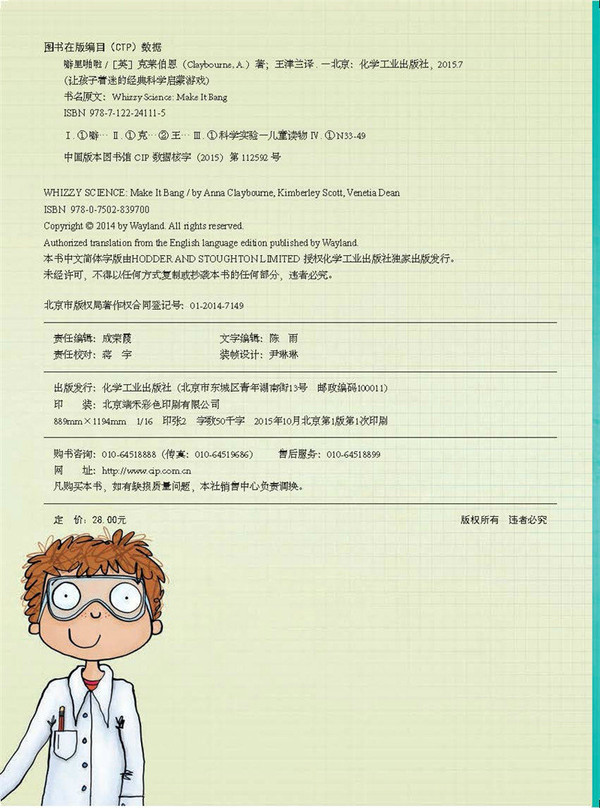 图书在版编目（CTP）数据
噼里啪啦 / [英] 克莱伯恩（Claybourne, A.）著；王津兰译. —北京：化学工业出版社，2015.7
（让孩子着迷的经典科学启蒙游戏）
书名原文：Whizzy Science: Make It Bang
ISBN 978-7-122-24111-5
Ⅰ. ①噼… Ⅱ. ①克…②王… Ⅲ. ①科学实验—儿童读物 Ⅳ. ①N33-49
中国版本图书馆 CIP 数据核字（2015）第 112592 号
WHIZZY SCIENCE: Make It Bang / by Anna Claybourne, Kimberley Scott, Venetia Dean
ISBN 978-0-7502-839700
Copyright © 2014 by Wayland. All rights reserved.
Authorized translation from the English language edition published by Wayland.
本书中文简体字版由HODDER AND STOUGHTON LIMITED 授权化学工业出版社独家出版发行。
未经许可，不得以任何方式复制或抄袭本书的任何部分，违者必究。
北京市版权局著作权合同登记号：01-2014-7149
责任编辑：成荣霞 文字编辑：陈 雨
责任校对：蒋 宇 装帧设计：尹琳琳
出版发行：化学工业出版社（北京市东城区青年湖南街13号 邮政编码100011）
印 装：北京瑞禾彩色印刷有限公司
889mm×1194mm 1/16 印张2 字数50千字 2015年10月北京第1版第1次印刷
购书咨询：010-64518888（传真：010-64519686） 售后服务：010-64518899
网 址：http://www.cip.com.cn
凡购买本书，如有缺损质量问题，本社销售中心负责调换。
定 价：28.00元 版权所有 违者必究